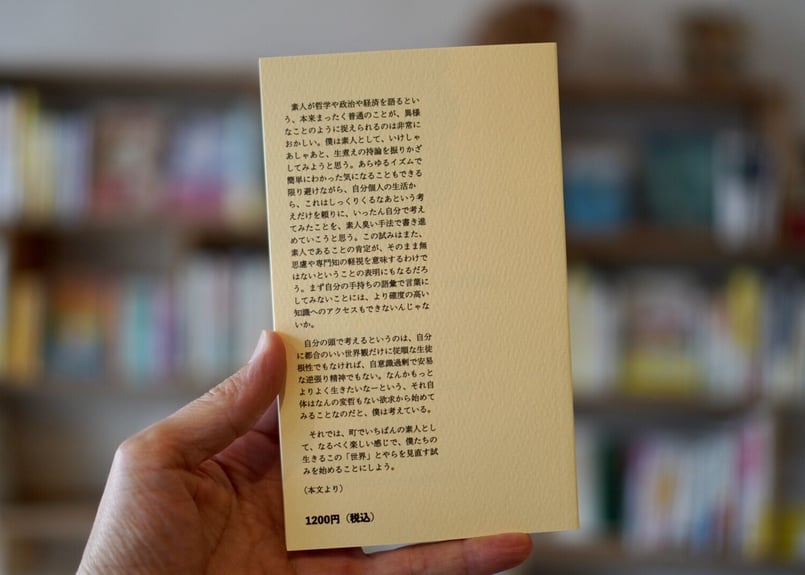 素人が哲学や政治や経済を語るとい
う、本来まったく普通のことが、異様
なことのように捉えられるのは非常に
おかしい。僕は素人として、いけしゃ
あしゃあと、生煮えの持論を振りかざ
してみようと思う。あらゆるイズムで
簡単にわかった気になることもできる
限り避けながら、自分個人の生活か
ら、これはしっくりくるなあという考
えだけを頼りに、いったん自分で考え
てみたことを、素人臭い手法で書き進
めていこうと思う。この試みはまた、
素人であることの肯定が、そのまま無
思慮や専門知の軽視を意味するわけで
はないということの表明にもなるだろ
う。まず自分の手持ちの語彙で言葉に
してみないことには、より確度の高い
知識へのアクセスもできないんじゃな
いか。
自分の頭で考えるというのは、自分
に都合のいい世界観だけに従順な生徒
根性でもなければ、自意識過剰で安易
な逆張り精神でもない。なんかもっと
よりよく生きたいなーという、それ自
体はなんの変哲もない欲求から始めて
みることなのだと、僕は考えている。
それでは、町でいちばんの素人とし
て、なるべく楽しい感じで、僕たちの
生きるこの「世界」とやらを見直す試
みを始めることにしよう。
（本文より）
1200円（税込）